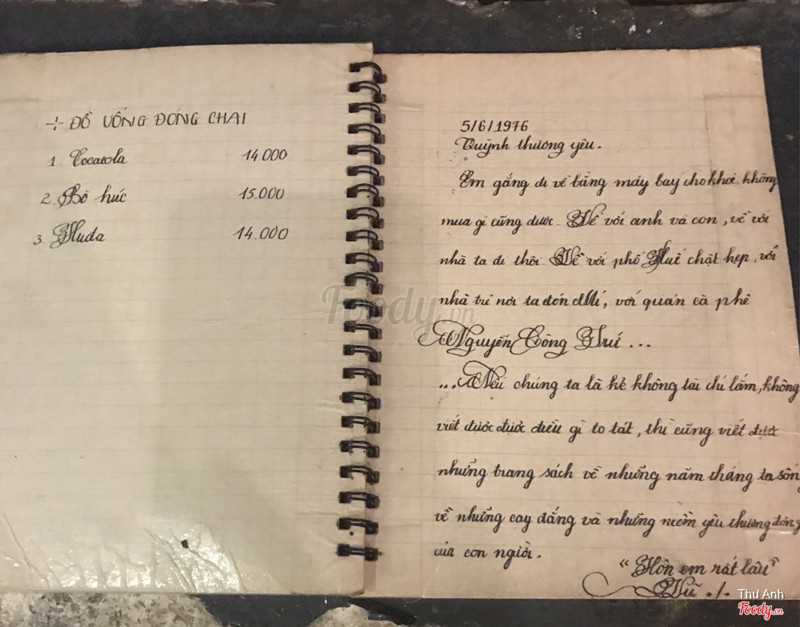 ÷ ĐỒ UỐNG ĐÓNG CHAI
1 Cocacola 14.000
2. Bò húc 15.000
3. Huda 14.000
5/6/1976
Quỳnh thương yêu.
Em gắng đi về bằng máy bay cho khoẻ không
mua gì cũng được. Về với anh và con, về với
nhà ta đi thôi. Về với phố Huế chật hẹp, với
nhà trẻ nơi ta đón Mí, với quán cà phê
Nguyễn Công Trứ ...
... Nếu chúng ta là kẻ không tài chí lắm, không
viết được được điều gì to tát, thì cũng viết được
những trang sách về những năm tháng ta sống
về những cay đắng và những niềm yêu thương
của con người.
"Hôn em rất lâu"
Vũ ./.
Foody.vn
Thư Anh
Foody.vn